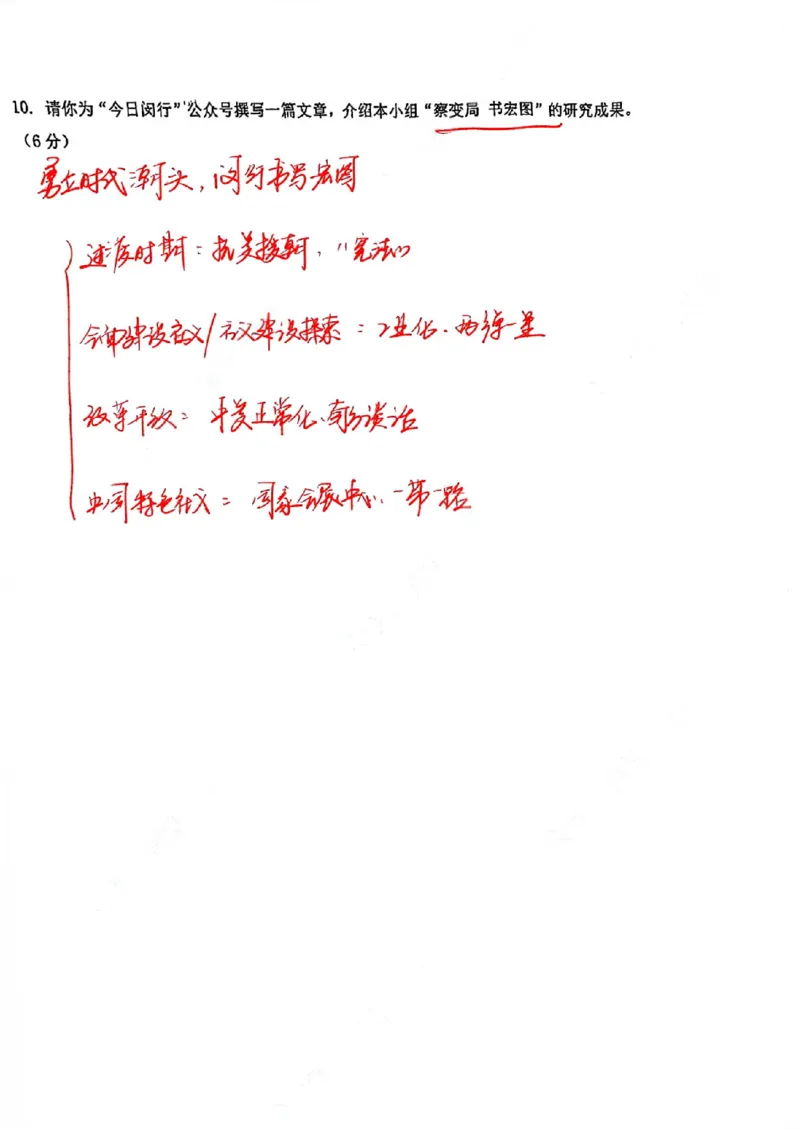 10. 请你为“今日闵行”公众号撰写一篇文章，介绍本小组“察变局 书宏图”的研究成果。
（6分）
勇立时代潮头，闵行书写宏图
过渡时期：抗美援朝，“宪法”
全面建设社义/社义建设探索：工业化、两弹一星
改革开放：中美正常化、南方谈话
中国特色社义：国家会展中心、一带一路